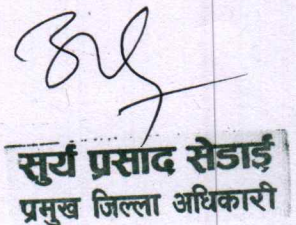 सुर्य प्रसाद सेडाईं
प्रमुख जिल्ला अधिकारी